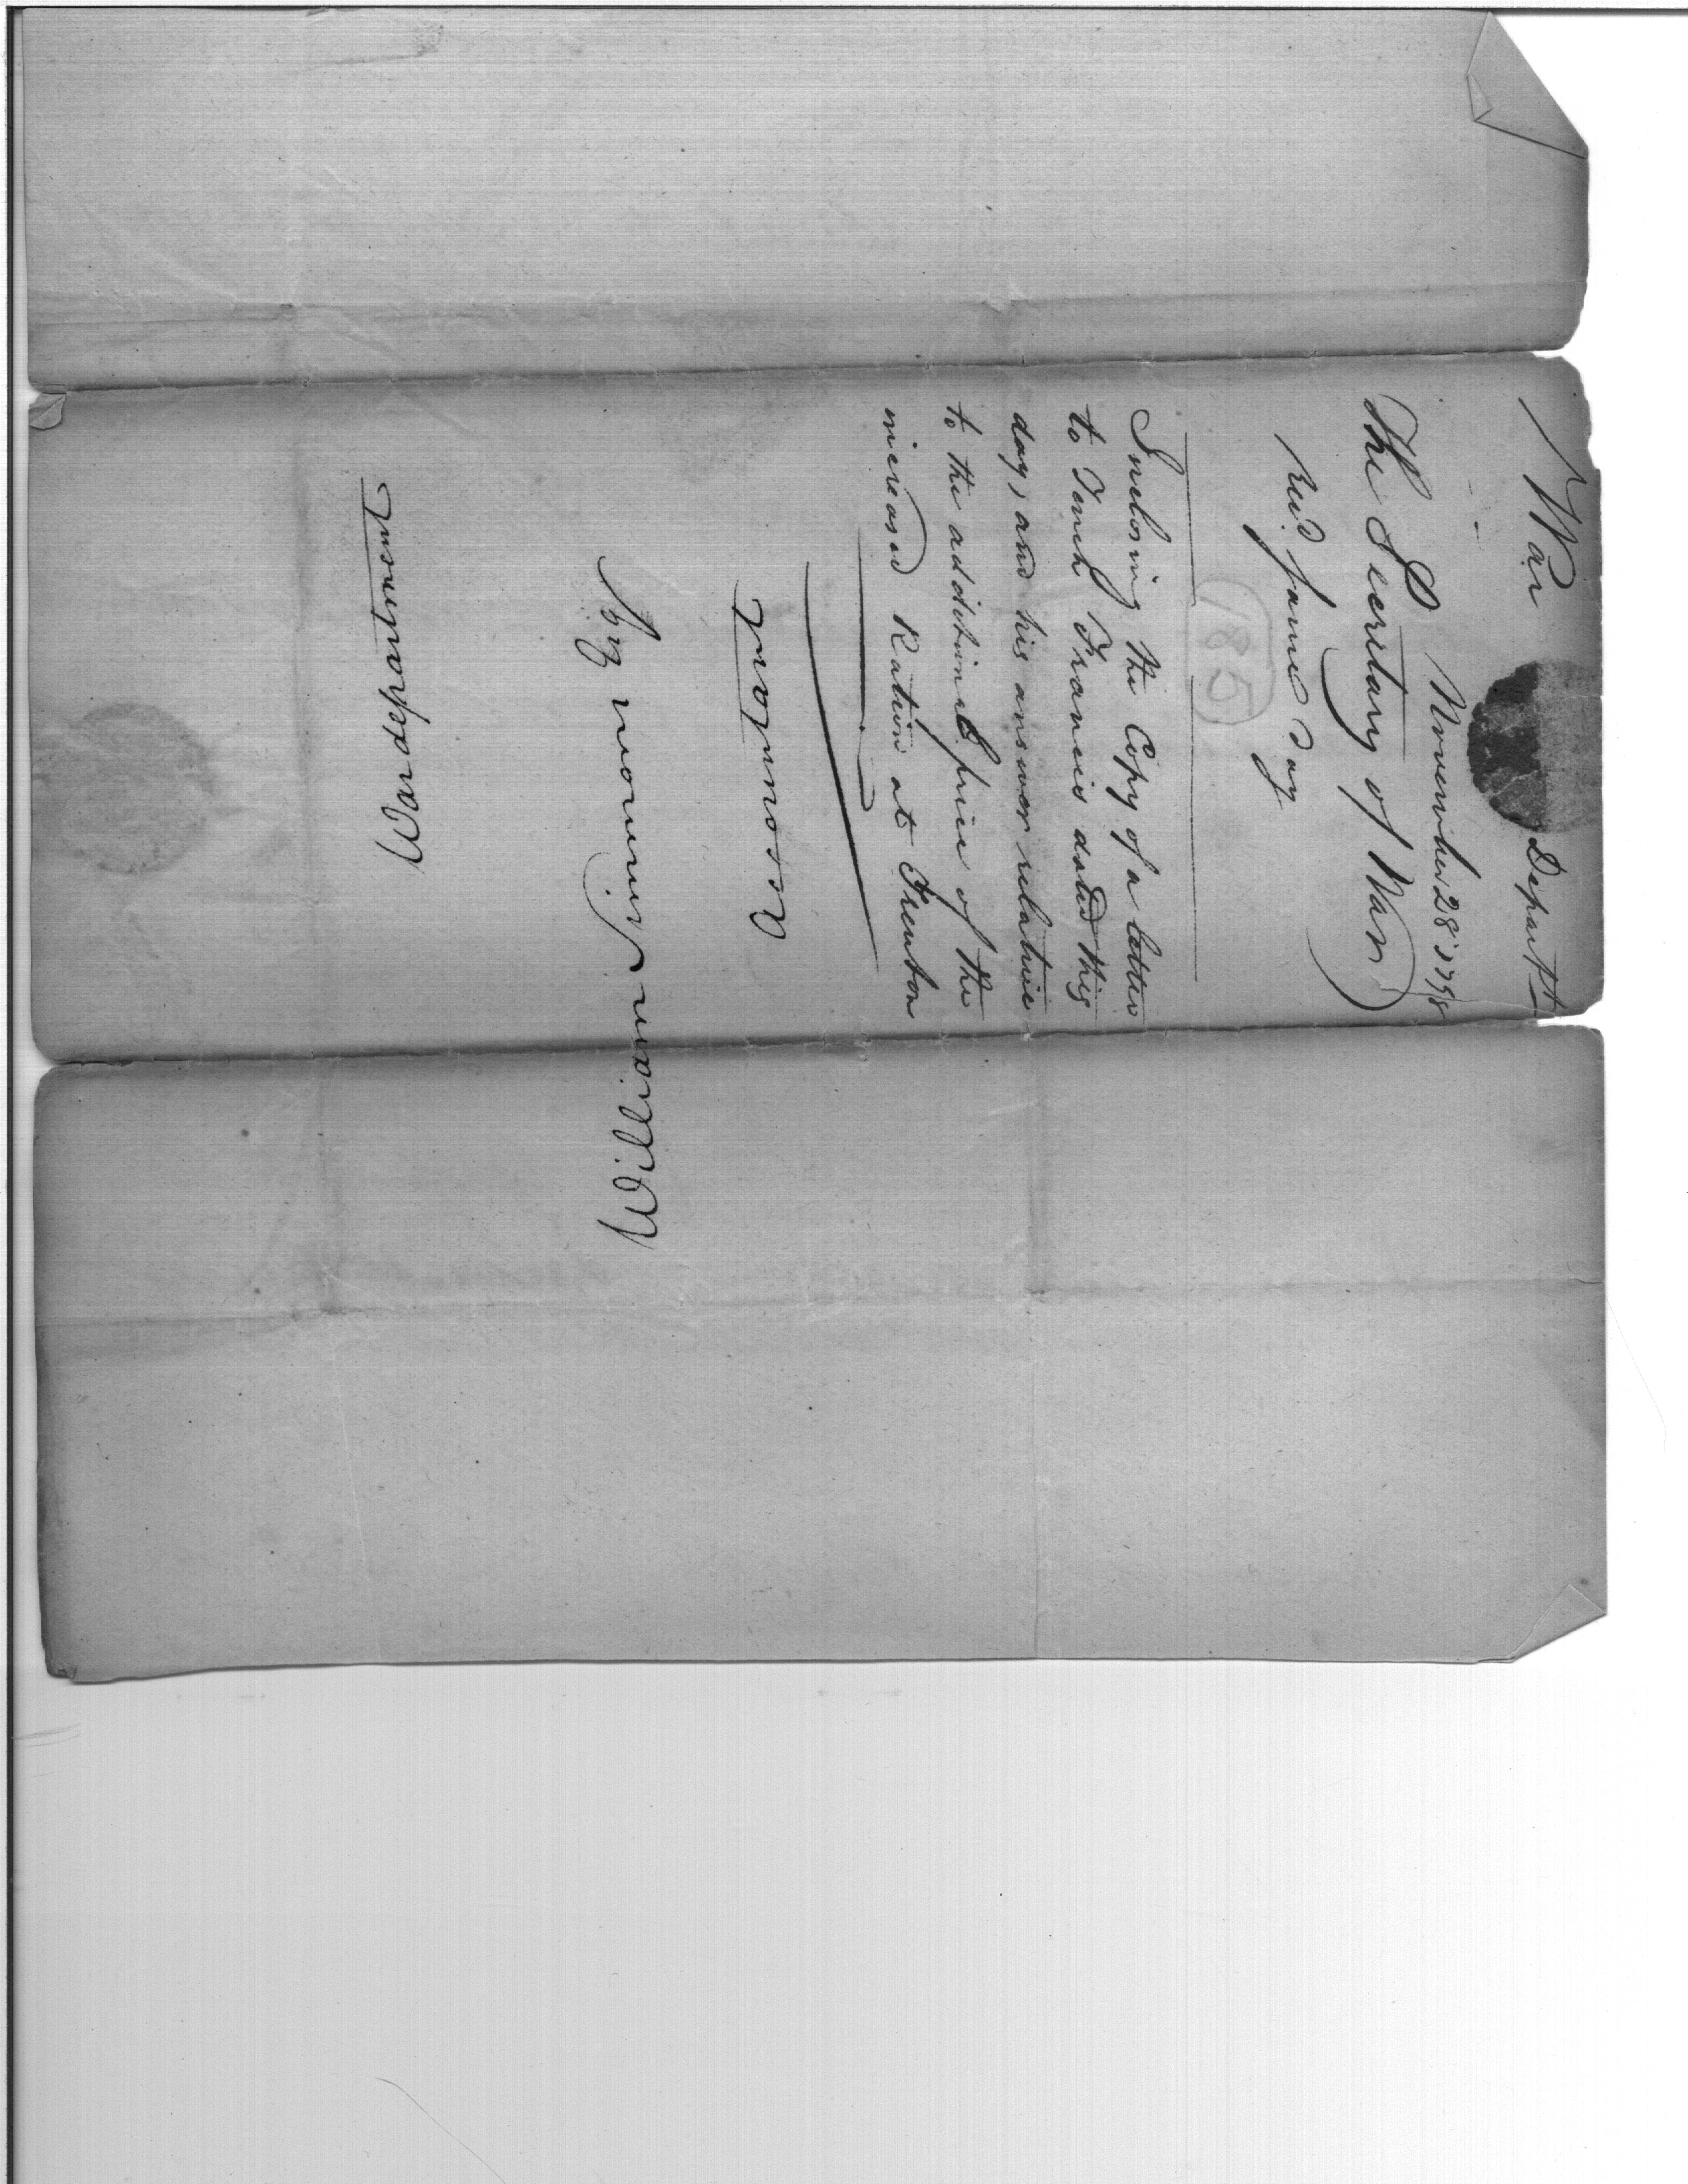 War Departt
November 28 1798
The Secretary of War
recd same day
185
Inclosing the Copy of a letter
to Tench Francis dated this
day, and his answer relative
to the additional price of the
increased Ration at Trenton
Accountant
William Simmons Esq
War department